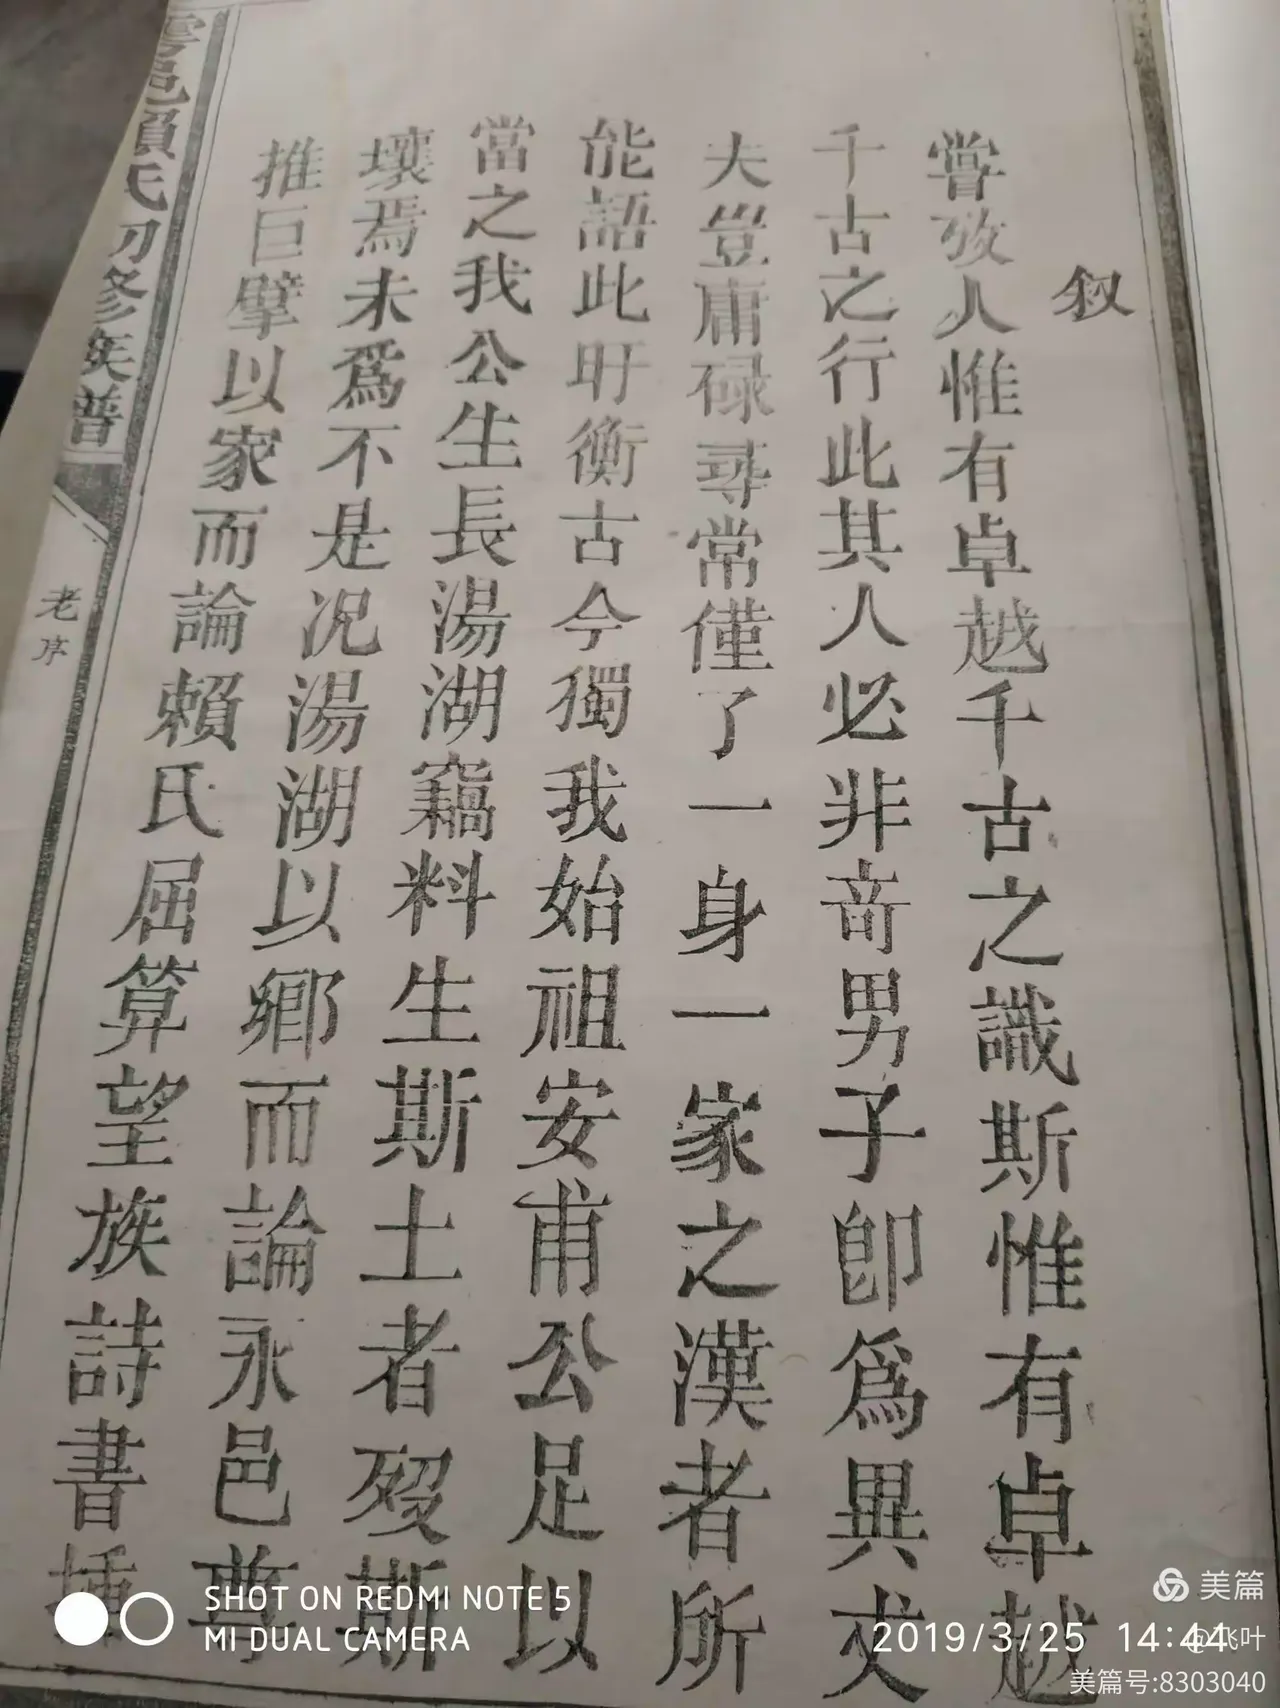 叙
嘗攷人惟有卓越千古之識斯惟有卓越
千古之行此其人必非竒男子卽爲異丈
夫豈庸碌尋常僅了一身一家之漢者所
能語此盱衡古今獨我始祖安甫公足以
當之我公生長湯湖竊料生斯土者歿斯
壤焉未爲不是况湯湖以鄉而論永邑尊
推巨擘以家而論賴氏屈算望族詩書
雩邑賴氏初修族譜
老序
SHOT ON REDMI NOTE 5
MI DUAL CAMERA
美篇
2019/3/25 14:44
飞叶
美篇号:8303040